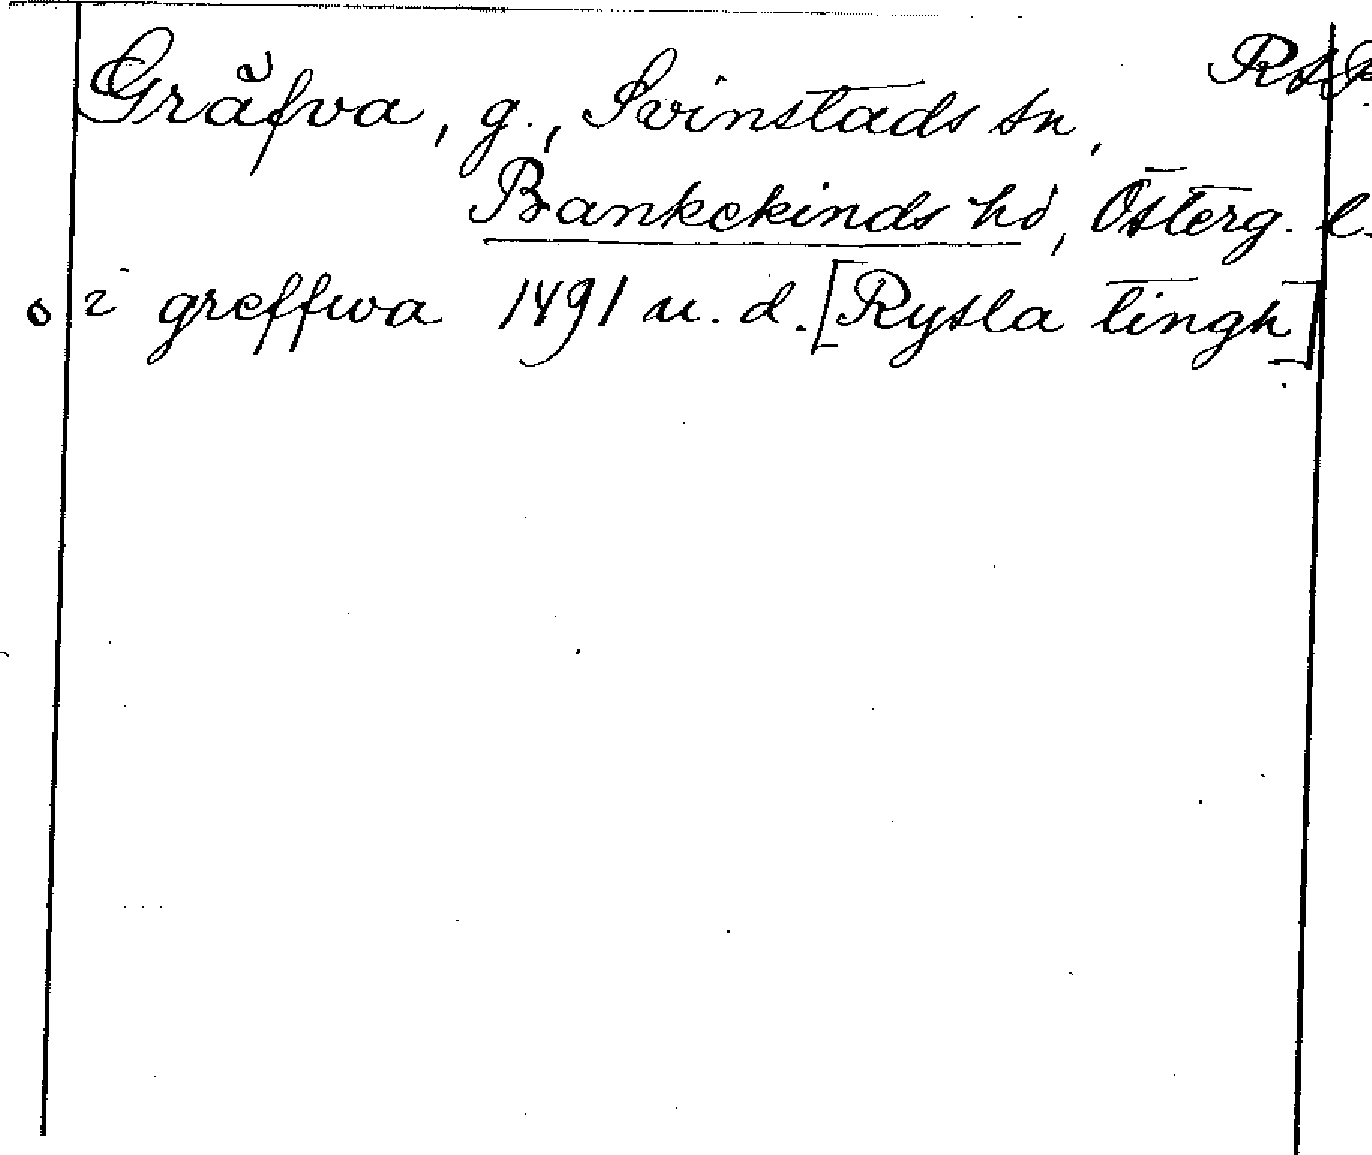 Gräfva, g., Svinstads sn,
Bankekinds hd, Österg. l.
o i greffwa 1491 u. d. [Rystla tingh]